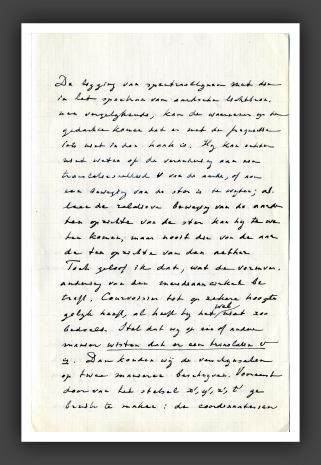 De ligging van spectraallijnen met die
in het spectrum van aardsche lichtbron-
nen vergelijkende, kan de waarnemer op de
gedachte komen dat er met de frequentie
iets aan de hand is. Hij kan echter
niet weten of de verandering aan een
translatiesnelheid v van de aarde, of aan
een beweging van de ster is te wijten; al-
leen de relatieve beweging van de aarde
ten opzichte van de ster kan hij te we-
ten komen, maar nooit die van de aar-
de ten opzichte van den aether.
Toch geloof ik dat, wat de vermin-
dering van den meridiaancirkel be-
treft, Courvoisier tot op zekere hoogte
gelijk heeft, al heeft hij het wel niet zoo
bedoeld. Stel dat wij op een of andere
manier wisten dat er een translatie v
is. Dan konden wij de verschijnselen
op twee manieren beschrijven. Vooreerst
door van het stelsel x', y', z', t' ge-
bruik te maken: de coördinaatassen